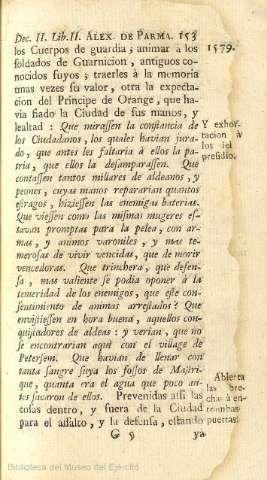 Dec. II. Lib. II. ALEX. DE PARMA. 153
los Cuerpos de guardia; animar à los
soldados de Guarnicion, antiguos co-
nocidos suyos; traerles à la memoria
unas vezes su valor, otra la expecta-
cion del Principe de Orange, que ha-
via fiado la Ciudad de sus manos, y
lealtad: Que mirassen la confiança de
los Ciudadanos, los quales havian jura-
do, que antes les faltaria à ellos la pa-
tria, que ellos la desamparassen. Que
contassen tantos millares de aldeanos, y
peones, cuyas manos repararian quantos
estragos, hiziessen las enemigas baterias.
Que viessen como las mismas mugeres es-
tavan promptas para la pelea, con ar-
mas, y animos varoniles, y mas te-
merosas de vivir vencidas, que de morir
vencedoras. Que trinchera, que defen-
sa, mas valiente se podia oponer à la
temeridad de los enemigos, que este con-
sentimiento de animos arrestados? Que
envistiessen en hora buena, aquellos con-
quistadores de aldeas: y verian, que no
se encontrarian aqui con el village de
Petersen. Que havian de llenar con
tanta sangre suya los fossos de Mastri-
que, quanta era el agua que poco an-
tes sacaron de ellos. Prevenidas assi las
cosas dentro, y fuera de la Ciudad
para el assalto, y la defensa, estando
G 9 ya
1579.
Y exhor-
tacion à
los del
presidio.
Abierta
las bre-
chas à en-
trambas
puertas:
Biblioteca del Museo del Ejército